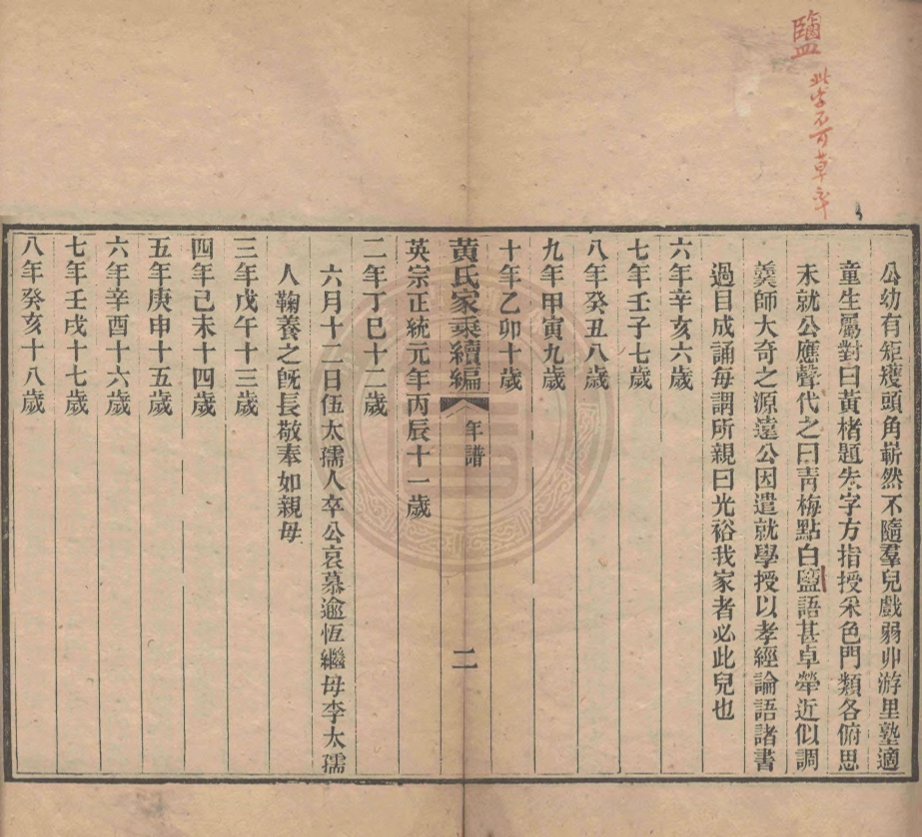 鹽 此字不可草率
公幼有矩矱頭角嶄然不隨羣兒戲弱丱游里塾適
童生屬對曰黃楮題朱字方指授采色門類各俯思
未就公應聲代之曰靑梅點白鹽語甚卓犖近似調
羹師大奇之源遠公因遣就學授以孝經論語諸書
過目成誦每謂所親曰光裕我家者必此兒也
六年辛亥六歲
七年壬子七歲
八年癸丑八歲
九年甲寅九歲
十年乙卯十歲
黃氏家乘續編 年譜 二
英宗正統元年丙辰十一歲
二年丁巳十二歲
六月十二日伍太孺人卒公哀慕逾恆繼母李太孺
人鞠養之旣長敬奉如親母
三年戊午十三歲
四年己未十四歲
五年庚申十五歲
六年辛酉十六歲
七年壬戌十七歲
八年癸亥十八歲